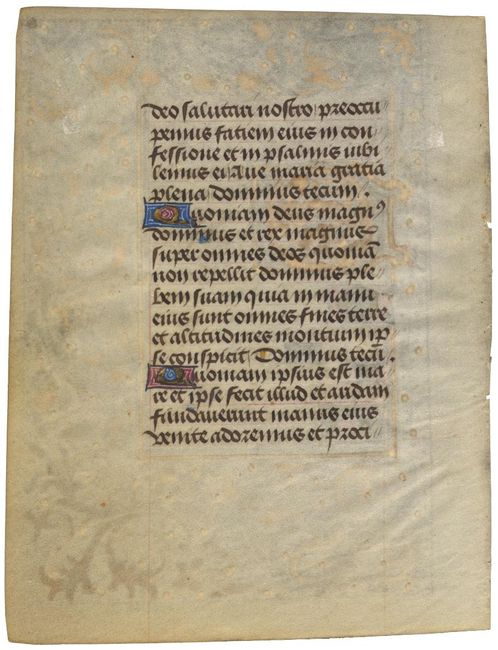 deo salutari nostro preoccu
pemus faciem eius in con
fessione et in psalmis iubi
lemus ei Aue maria gratia
plena dominus tecum .
Quoniam deus magnꝰ
dominus et rex magnus
super omnes deos quoniā
non repellit dominus ple
bem suam quia in manu
eius sunt omnes fines terre
et altitudines montium ip̄
se conspicit Dominus tecū .
Quoniam ipsius est ma
re et ipse fecit illud et aridam
fundauerunt manus eius
venite adoremus et proci